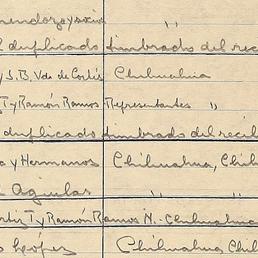 mendozayaxia ,,
duplicado timbrado del rec
y S.B. Vda de Cortés Chihuahua
T y Ramón Ramos Representantes ,,
duplicado timbrado del recib
a y Hermanos Chihuahua, Chih
Aguilar ,, ,,
ortiz T y Ramón Ramos N.-Chihuahua
López Chihuahua Chih